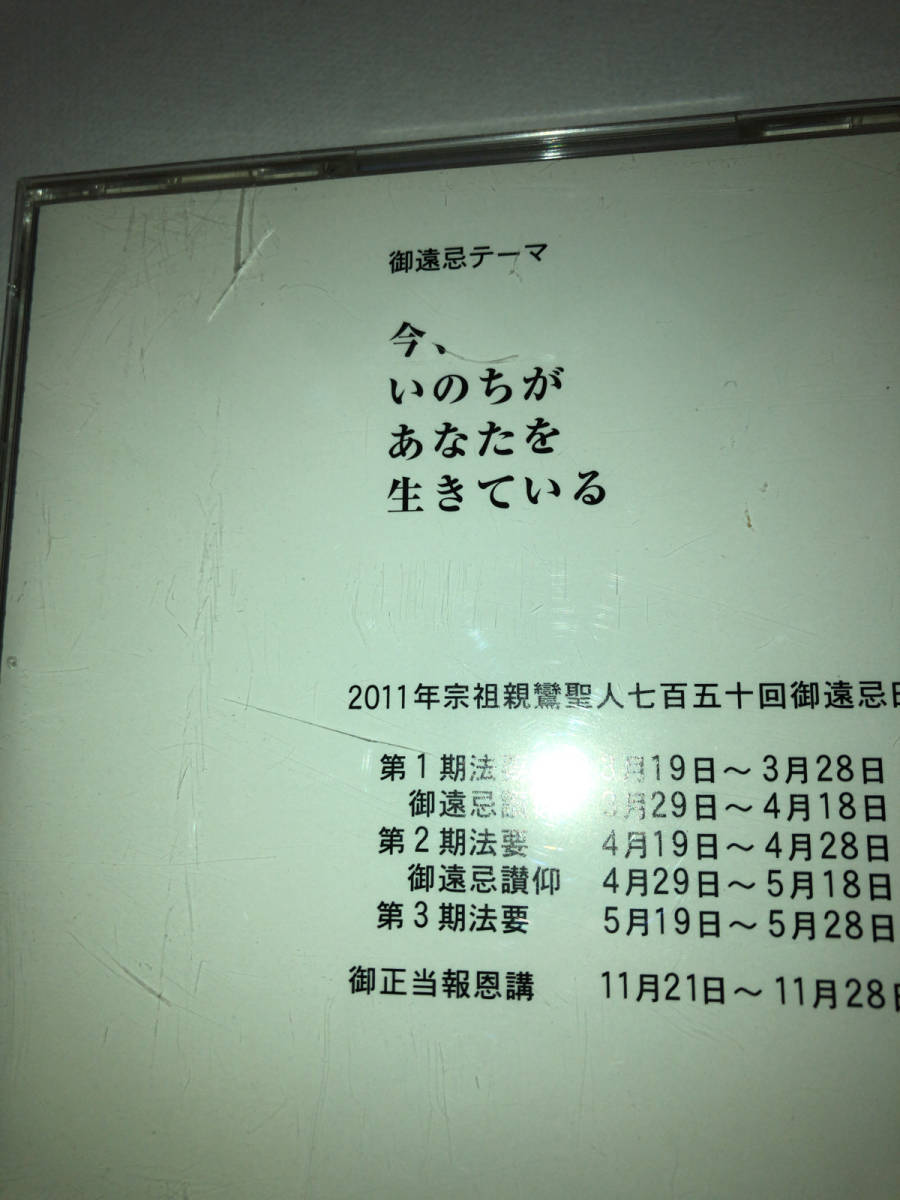 御遠忌テーマ
今、
いのちが
あなたを
生きている
2011年宗祖親鸞聖人七百五十回御遠忌
第1期法要 3月19日〜3月28日
御遠忌讃 3月29日〜4月18日
第2期法要 4月19日〜4月28日
御遠忌讃仰 4月29日〜5月18日
第3期法要 5月19日〜5月28日
御正当報恩講 11月21日〜11月28日